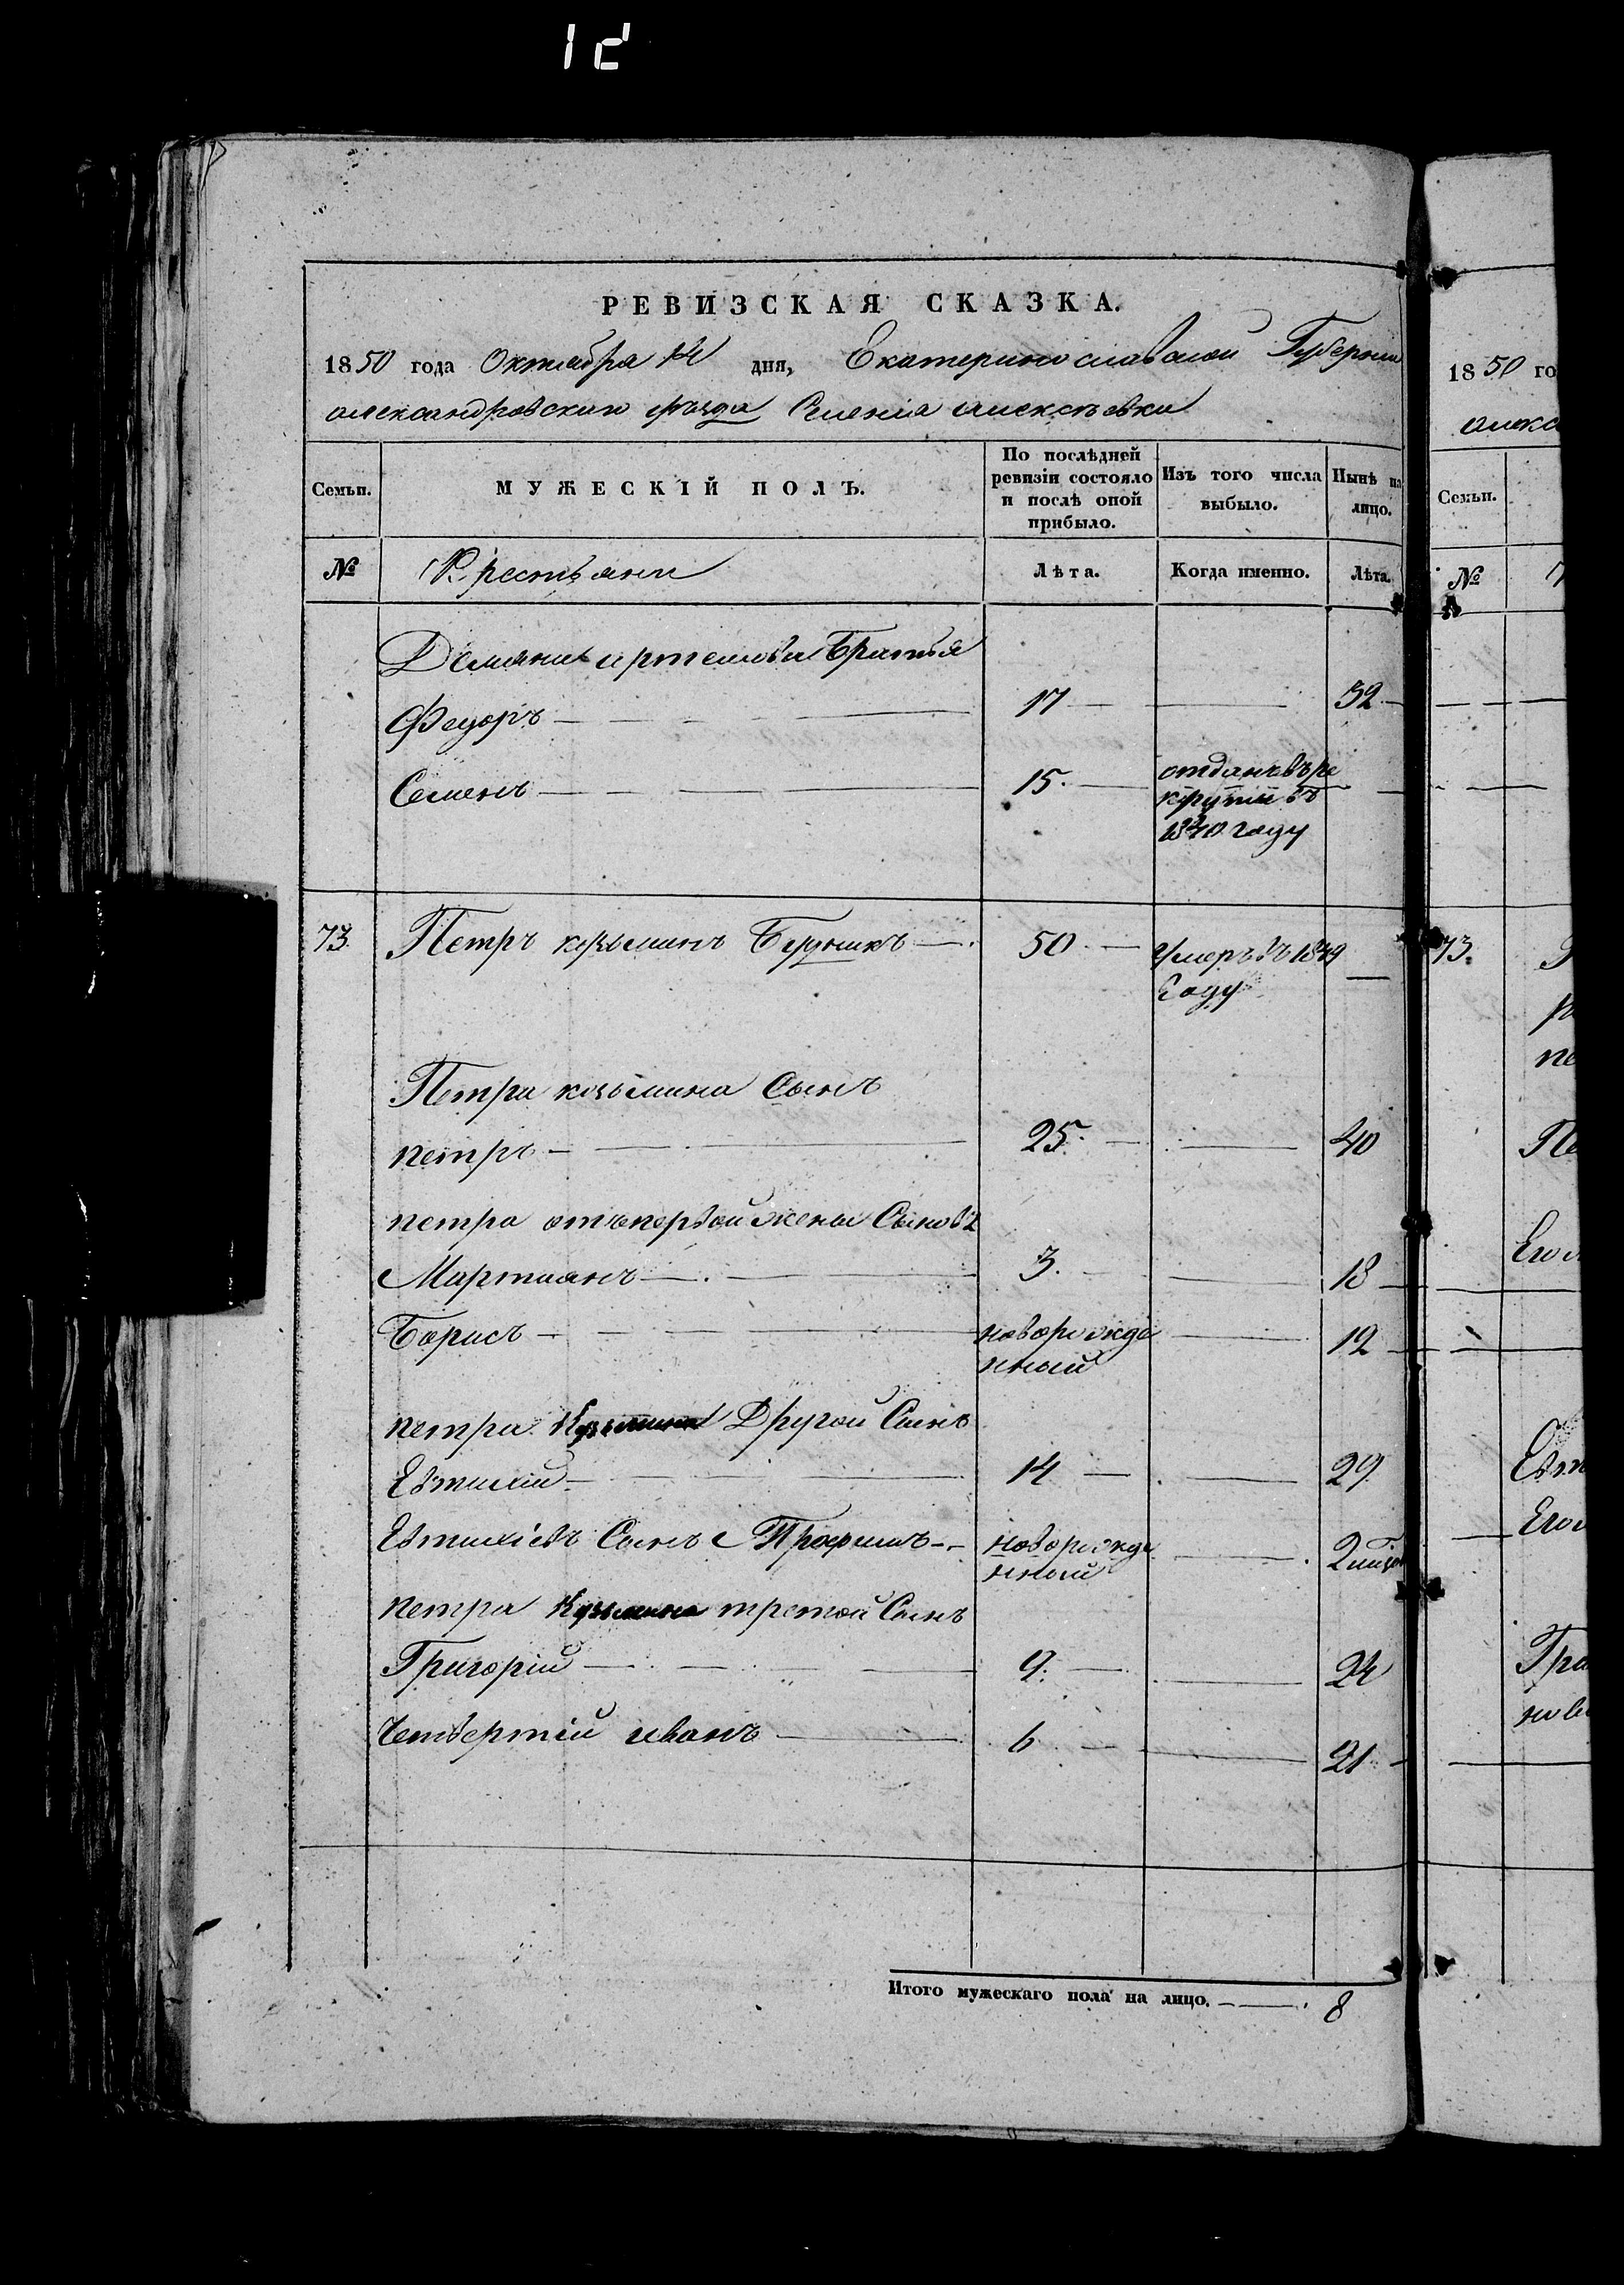 12
РЕВИЗСКАЯ СКАЗКА.
1850 года Октября 14 дня, Екатеринославской Губерніи
александровскаго уѣзда Селенія алексѣевки
Семьи.
МУЖЕСКІЙ ПОЛЪ.
По послѣдней ревизіи состояло и послѣ оной прибыло.
Изъ того числа выбыло.
Нынѣ на лицо.
№
Крестьяни
Лѣта.
Когда именно.
Лѣта.
Демяна артемова Братья
Федоръ 17 32
Семенъ 15. отданъ въ ре
круты въ
1840 году
73. Петръ козьминъ 50 умеръ въ 1849
Году
Петра козьмина Сынъ
петръ 25. 40
петра отъ первой жены Сынов 2
Мартианъ 3. 18
Борисъ новорожде 12
нный
петра Кузьмина Другой Сынъ
Евтихій 14 29
Евтихіевъ Сынъ Трофимъ новорожде 2
нный
петра Кузьмина третой Сынъ
Григорій 9. 24
Четвертій иванъ 6 21
Итого мужескаго пола на лицо. 8
1850 го
алекс
Семьи.
№
73.
Пе
Его
Евт
Его
Гри